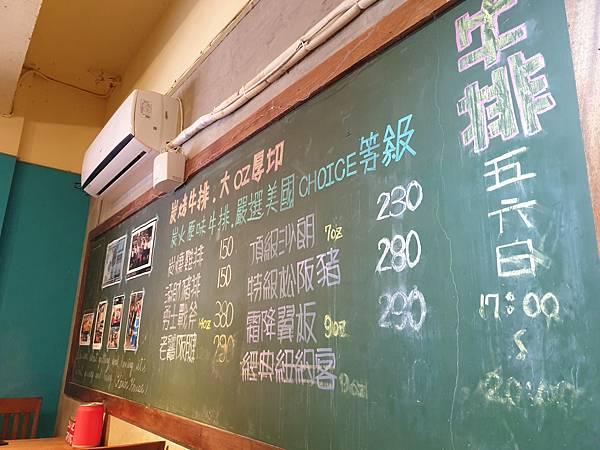 牛排
炭味牛排.大OZ厚切
炭火原味牛排.嚴選美國CHOICE等級
炭燒雞排 150
頂級沙朗 7oz 230
豬排 150
特級松阪豬 280
勇士戰斧 14oz 380
霜降翼板 9oz 290
老饕 290
經典紐約客 9oz
五六日
17:00